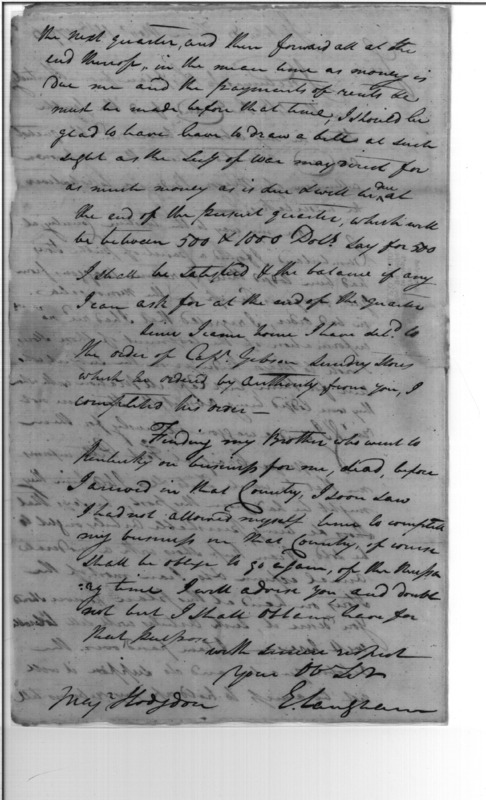 the next quarter, and then forward all at the
end thereof, in the mean time as money is
due me and the payments of rents &c
must be made before that time, I should be
glad to have leave to draw a bill at such
sight as the Secy of War may direct for
as much money as is due & will be due at
the end of the present quarter, which will
be between 500 & 1000 Dolls say for 500
I shall be satisfied & the balance if any
I can ask for at the end of the quarter
Since I came home I have deld to
the order of Capt Gibson sundry stores
which he ordered by authority from you, I
completed his order—
Finding my Brother who went to
Kentucky on business for me, dead, before
I arrived in that Country, I soon saw
I had not allowed myself time to complete
my business in that Country, of course
shall be oblige to go again, of the necessa
:ry time I will advise you and doubt
not but I shall obtain leave for
that purpose
with sincere respect
your Ob Sv
Maj Hodgdon E. Langham